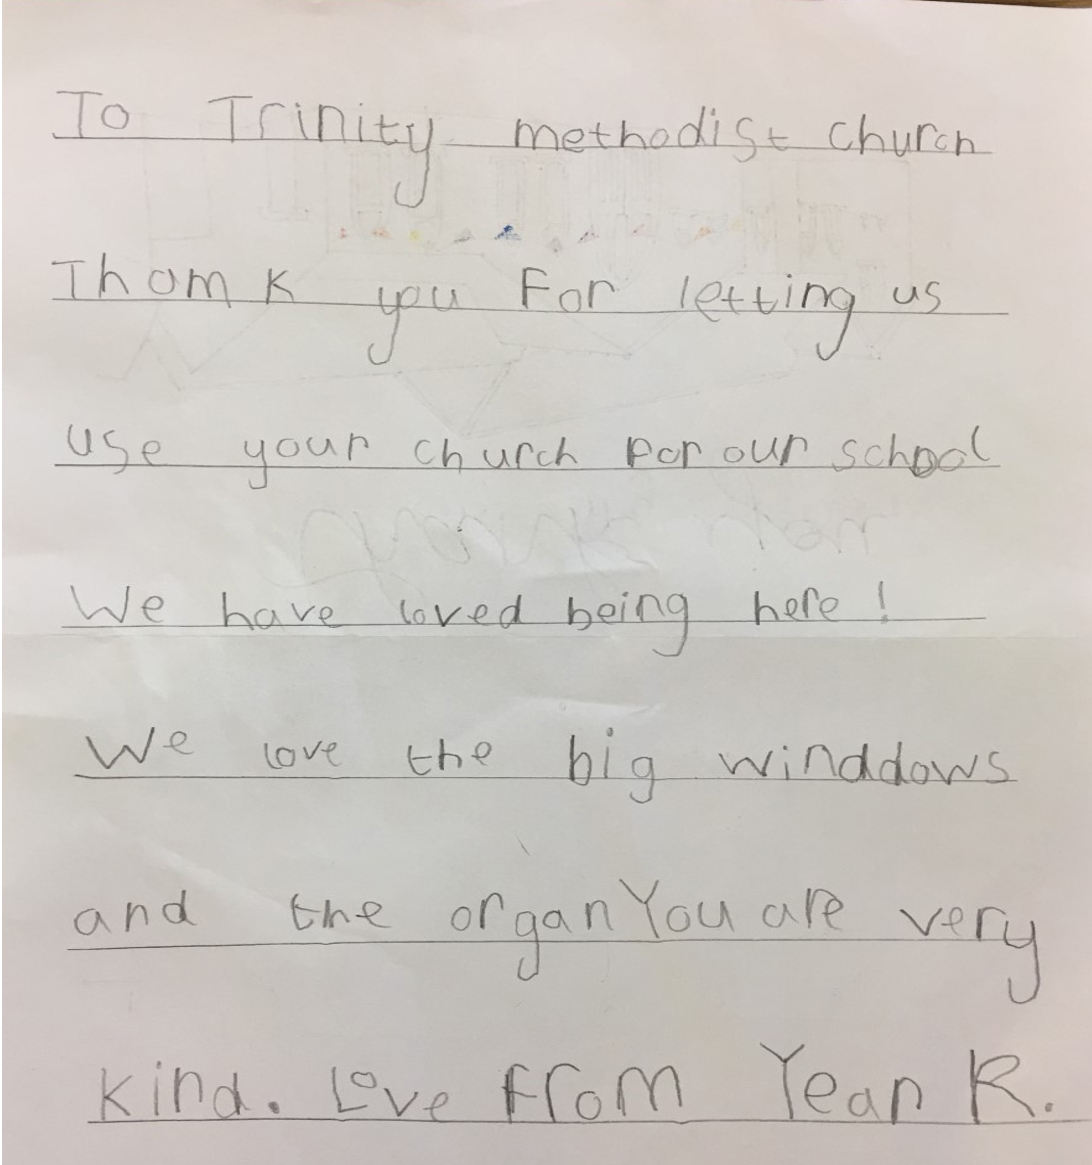 To Trinity methodist church
Thamk you For letting us
use your church for our school
We have loved being here!
We love the big winddows
and the organ You are very
kind. Love from Year R.